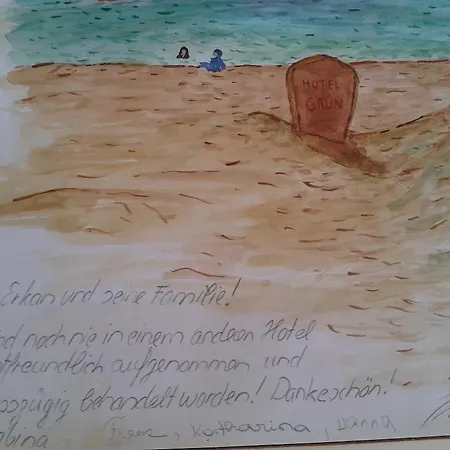 HOTEL
GRÜN
Erkan und seine Familie!
nd noch nie in einem anderen Hotel
tfreundlich aufgenommen und
szügig behandelt worden! Dankeschön!
bina, Irene, Katharina, Hanna